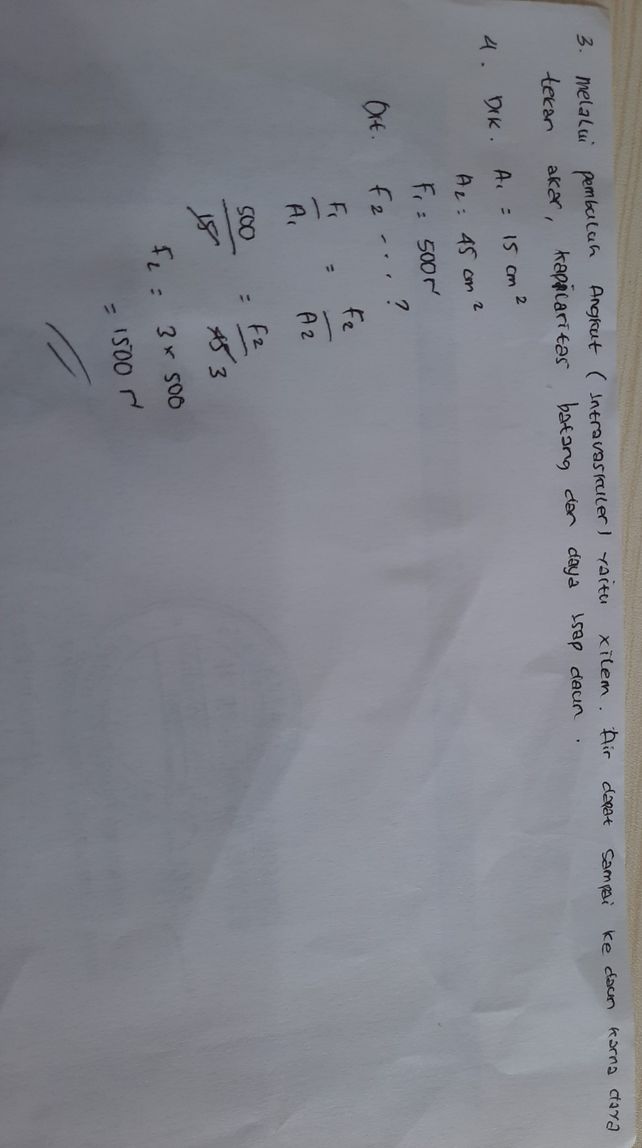 3. Melalui pembuluh Angkut (intravaskuler) yaitu xilem. Air dapat sampai ke daun karna daya
tekan akar, kapilaritas batang dan daya isap daun.
4. Dik. A₁ = 15 cm²
A₂ = 45 cm²
F₁ = 500 N
Dit. F₂ ... ?
F₁/A₁ = F₂/A₂
500/15 = F₂/45 3
F₂ = 3 x 500
= 1500 N